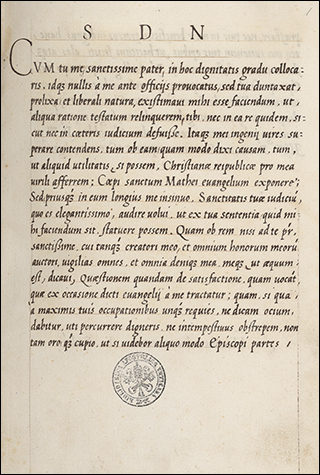 S D N
CVM tu me, sanctissime pater, in hoc dignitatis gradu colloca
ris, idq; nullis a me ante officijs provocatus, sed tua duntaxat,
prolixa, et liberali natura, existimavi mihi esse faciendum, ut,
aliqua ratione testatum relinquerem, tibi, nec in ea re quidem, si
cut nec in cæteris iudicium defuisse. Itaq; mei ingenij uires su
perare contendens, tum ob eam, quam modo dixi causam, tum,
ut aliquid utilitatis, si possem, Christianæ reipublicæ pro mea
uirili afferrem; Cœpi sanctum Mathei euangelium exponere;
Sed, priusq; in eum longius me insinuo, Sanctitatis tuæ iudiciū,
quo es elegantissimo, audire uolui, ut ex tua sententia quid mi
hi faciendum sit, statuere possem. Quam ob rem nisi ad te pr̄,
sanctissime, cui tanq; creatori meo, et omnium honorum meorū
auctori, uigilias omnes, et omnia deniq; mea, meq; ut æquum
est, dicaui, Quæstionem quandam de satisfactione, quam uocāt,
quæ ex occasione dicti euangelij a me tractatur, quam, si qua
a maximis tuis occupationibus unq; requies, ne dicam ocium,
dabitur, uti percurrere digneris, ne intempestiuus obstrepem, non
tam oro q; cupio, ut si uidebor aliquo modo Episcopi partes